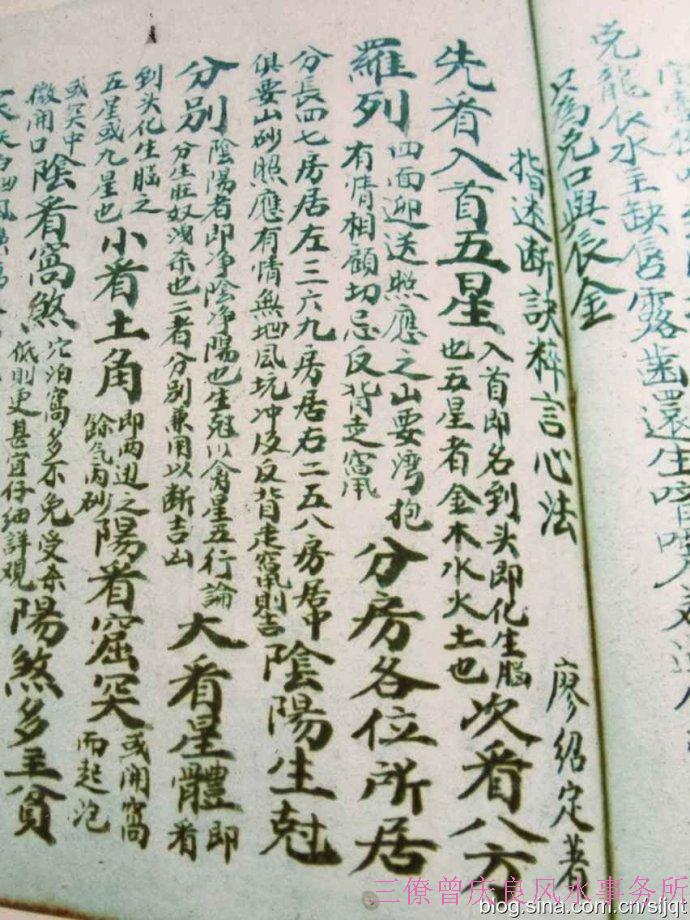 克龍似水主缺唇露齒還生
只為兌口與辰金
指迷斷訣粹言心法 廖紹定著
先看入首五星 入首即名到头即化生腦也五星者金木水火土也 次看八方
羅列 四面迎送照應之山要灣抱有情相顧切忌反背走竄 分房各位所居
分長四七房居左三六九房居右二五八房居中
俱要山砂照應有情無地風坑冲及反背走竄則吉 陰陽生尅
分別 陰陽者即净陰净陽也生尅以禽星五行論分生旺奴洩杀也二者分別兼用以斷吉凶 大看星體 即看
到头化生腦之五星或九星也 小看土角 即两边之餘气丙砂 陽看窟突 或開窩而起泡
或突中微開口 陰看窩煞 穴泊窩多不免受杀低則更甚宜仔细詳观 陽煞多主貧
三僚曾庆良风水事务所
blog.sina.com.cn/sljqt